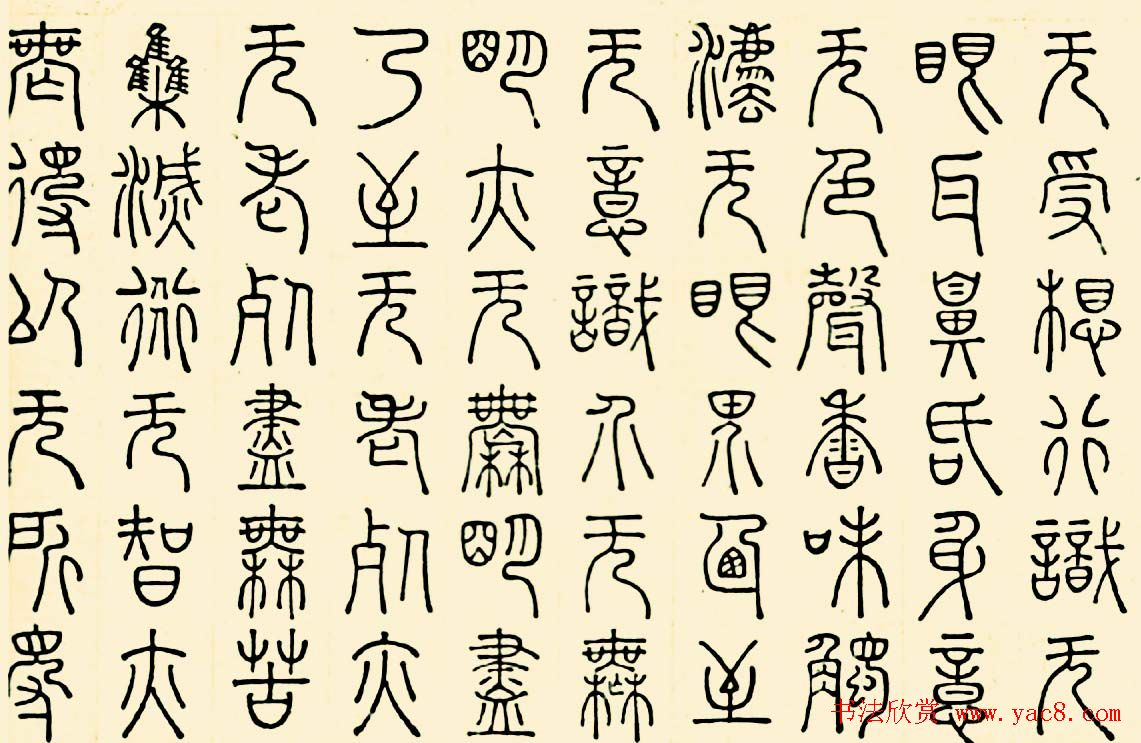 无受想行識无
眼耳鼻舌身意
无色聲香味觸
法无眼界迺至
无意識介无無
明亦无無明盡
乃至无老死亦
无老死盡無苦
集滅道无智亦
無得以无所得
书法欣赏 www.yac8.com